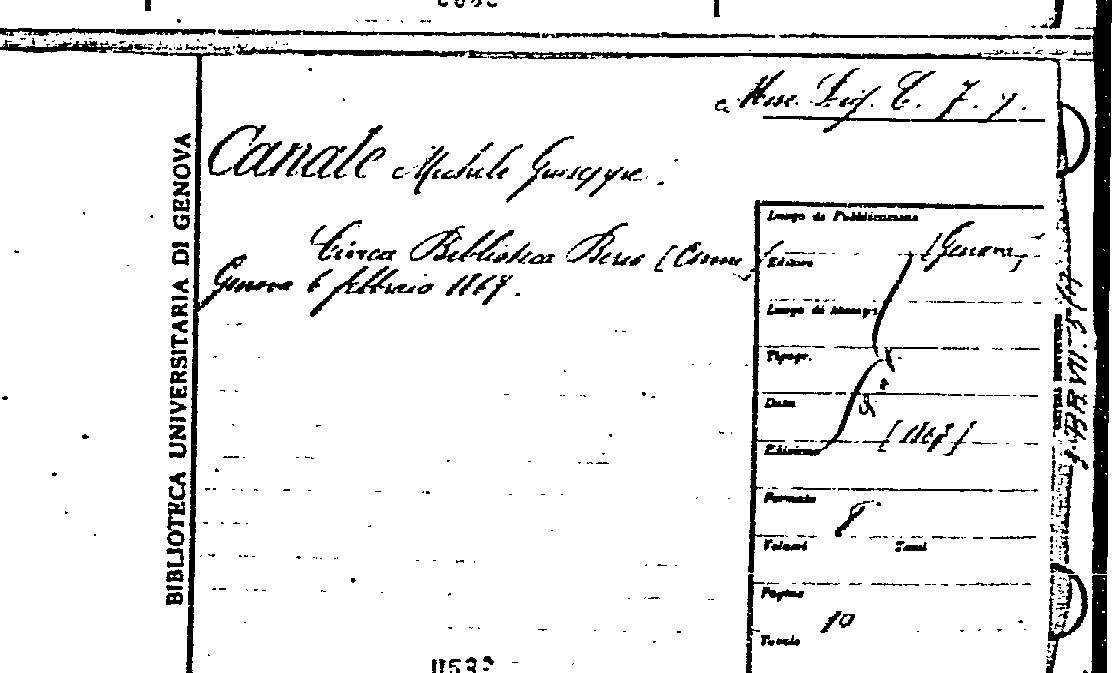 Misc. Lig. C. 7. 7.
Canale Michele Giuseppe.
Circa Biblioteca Berio
Genova 6 febbraio 1867.
BIBLIOTECA UNIVERSITARIA DI GENOVA
Luogo di Pubblicazione
[Genova]
Editore
Luogo di stampa
Tipogr.
Data
[1867]
Edizione
Formato
8
Volumi Tomi
Pagine
10
Tavole